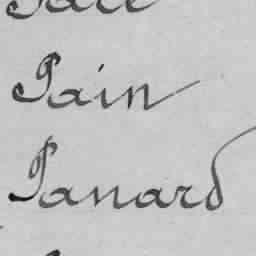 Pain
Panard